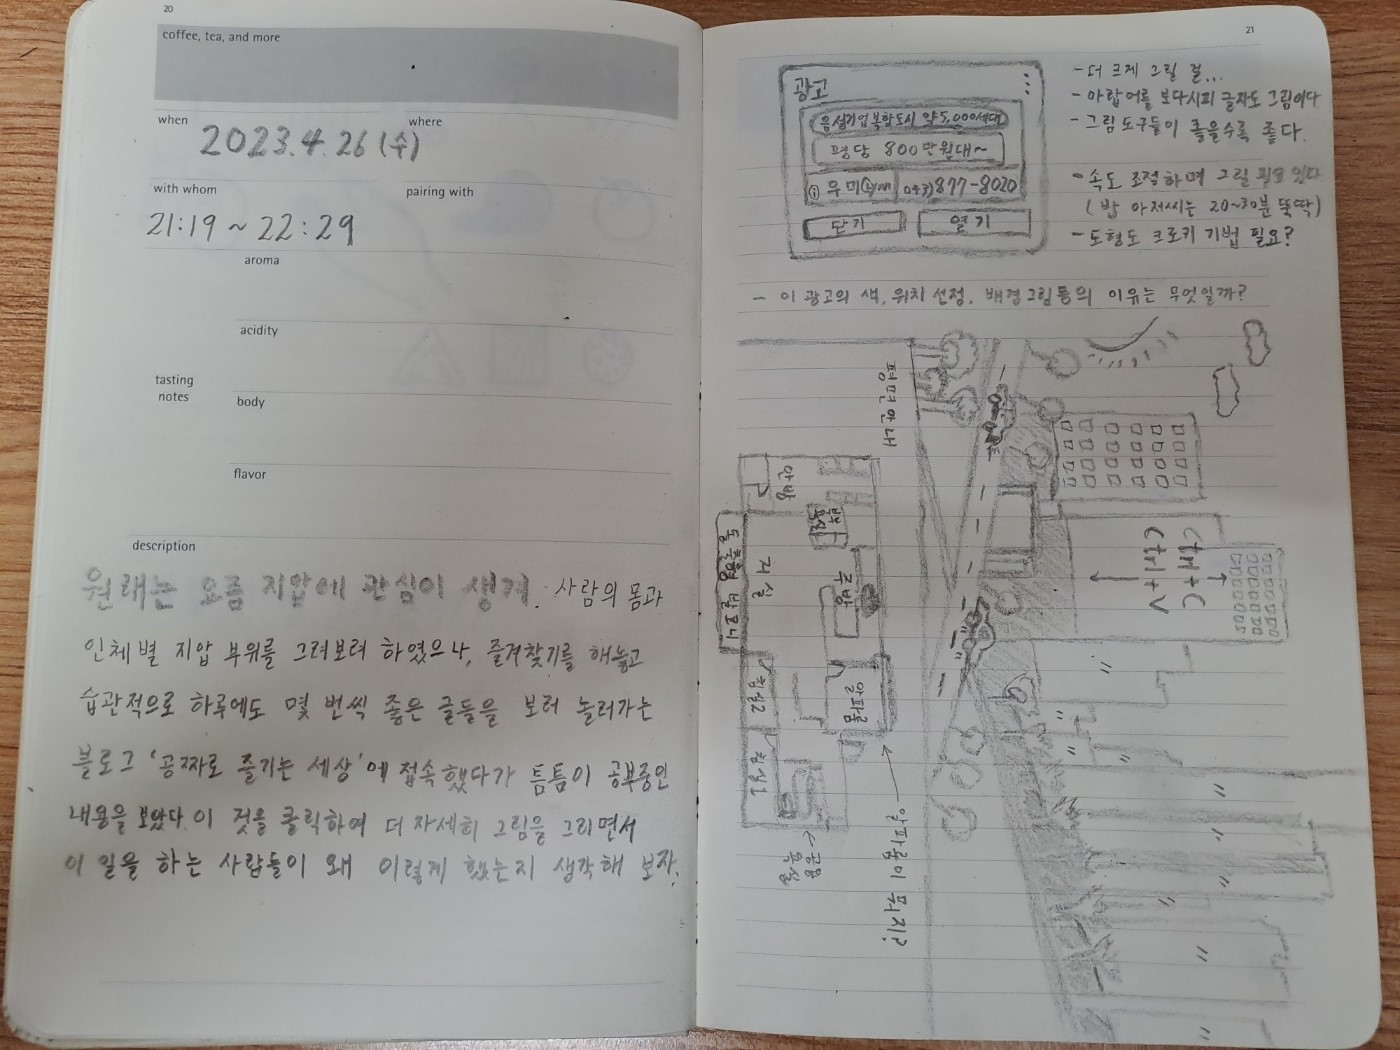 20
coffee, tea, and more
when
where
2023.4.26 (수)
with whom
pairing with
21:19 ~ 22:29
aroma
acidity
tasting
notes
body
flavor
description
원래는 요즘 지압에 관심이 생겨. 사람의 몸과
인체별 지압 부위를 그려보려 하였으나, 즐겨찾기를 해놓고
습관적으로 하루에도 몇 번씩 좋은 글들을 보러 놀러가는
블로그 '공짜로 즐기는 세상'에 접속했다가 틈틈이 공부중인
내용을 보았다. 이 것을 클릭하여 더 자세히 그림을 그리면서
이 일을 하는 사람들이 왜 이렇게 했는지 생각해 보자.
21
광고
음성기업복합도시 약5,000세대
평당 800만원대~
우미
043)877-8020
닫기
열기
- 더 크게 그릴 걸...
- 아랍어를 보다시피 글자도 그림이다
- 그림도구들이 좋을수록 좋다.
- 속도 조절하며 그릴 필요 있다
( 밥 아저씨는 20~30분 뚝딱)
- 도형도 크로키 기법 필요?
- 이 광고의 색, 위치 선정, 배경그림등의 이유는 무엇일까?
평면안내
안방
거실
주방
알파룸
침실2
침실1
공용
욕실
알파룸이 뭐지?
Ctrl+C
Ctrl+V